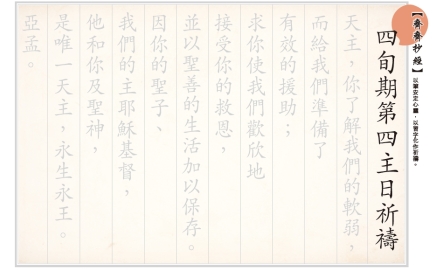 【齊齊抄經】
以筆安定心靈，以習字化作祈禱。
四旬期第四主日祈禱
天主，你了解我們的軟弱，
而給我們準備了
有效的援助；
求你使我們歡欣地
接受你的救恩，
並以聖善的生活加以保存。
因你的聖子、
我們的主耶穌基督，
他和你及聖神，
是唯一天主，永生永王。
亞孟。